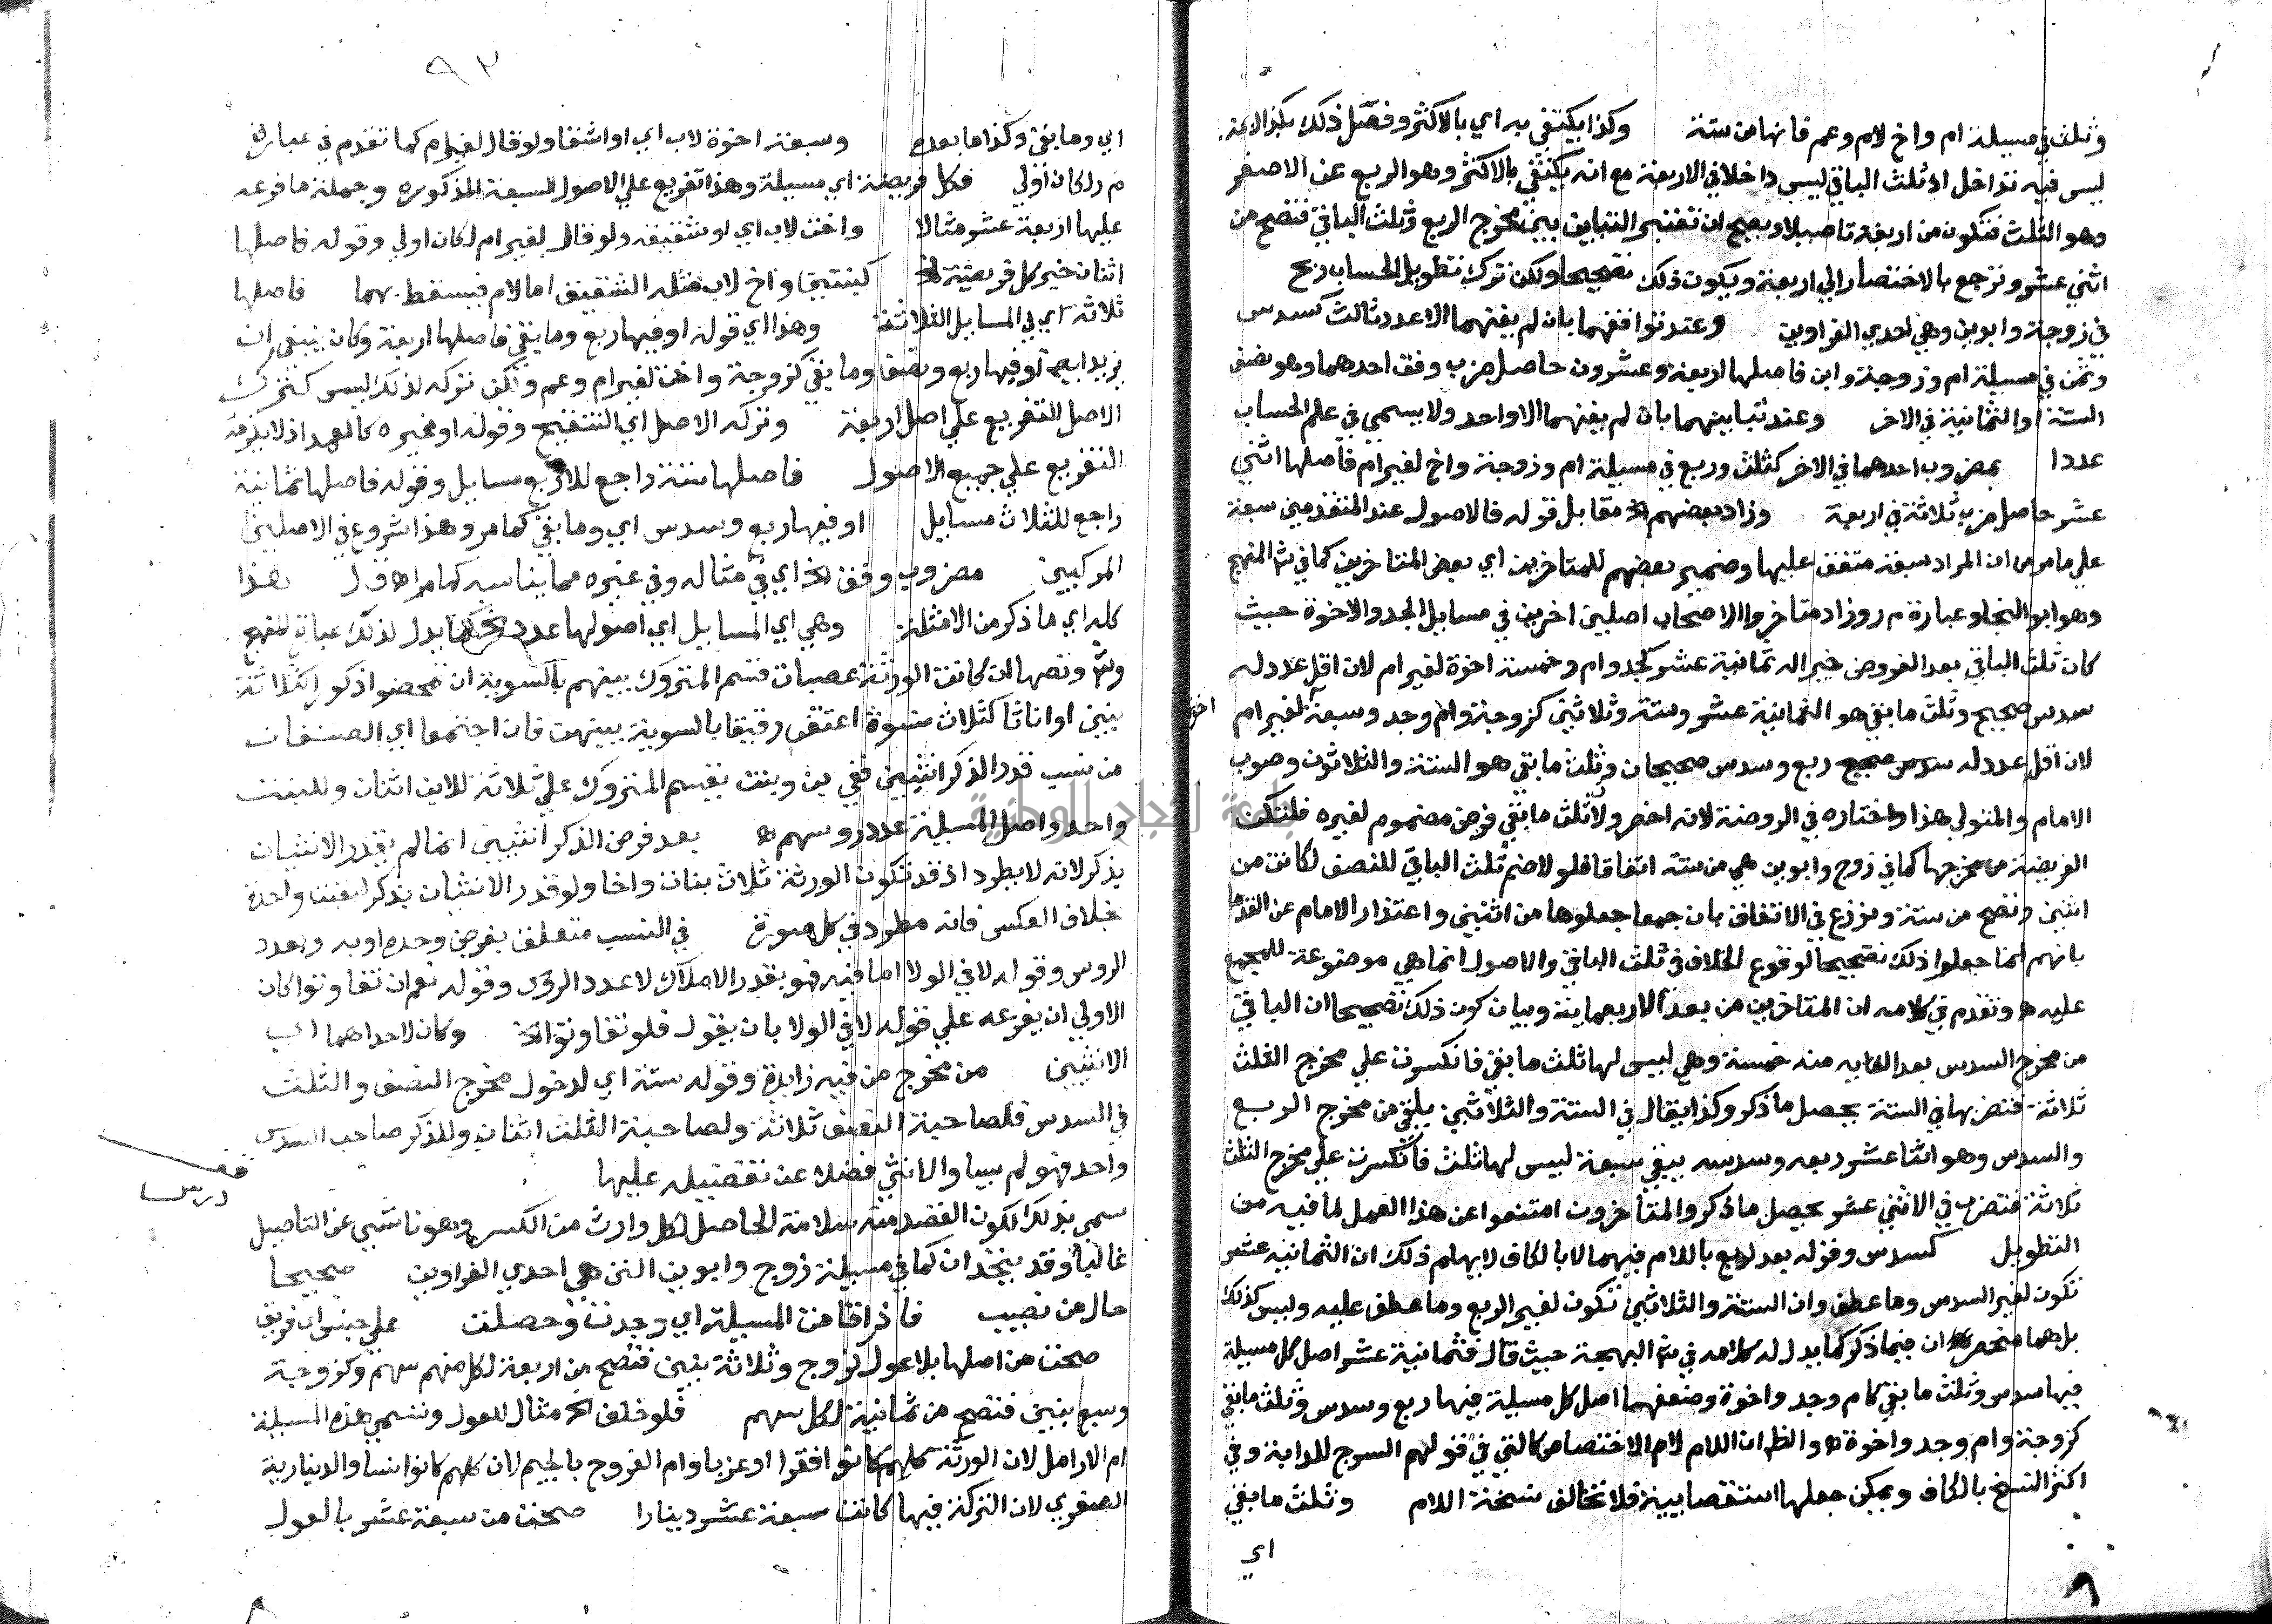 وثلث في مسيلة ام واخ لام وعم فانها من ستة وكذا يكتفي به اي بالاكثر وفصل ذلك بكذا لانه
ليس فيه تداخل اذ ثلث الباقي ليس داخلا في الاربعة مع انه يكتفي بالاكثر وهو الربع عن الاصغر
وهو الثلث فتكون من اربعة تاصيلا ويصح ان تعتبر التباين بين مخرج الربع وثلث الباقي فتصح من
اثني عشر وترجع بالاختصار الي اربعة ويكون ذلك تصحيحا ولكن ترك تطويل الحساب ربح
في زوجة وابوين وهي احدي الغراوين وعند توافقهما بان لم يفنهما الا عدد ثالث كسدس
وثمن في مسيلة ام وزوجة وابن فاصلها اربعة وعشرون حاصل ضرب وفق احدهما وهو نصف
الستة او الثمانية في الاخر وعند تباينهما بان لم يفنهما الا واحد ولا يسمي في علم الحساب
عددا بمضروب احدهما في الاخر كثلث وربع في مسيلة ام وزوجة واخ لغير ام فاصلها اثني
عشر حاصل ضرب ثلاثة في اربعة وزاد بعضهم الخ مقابل قوله فالاصول عند المتقدمين سبعة
علي ما مر من ان المراد سبعة متفق عليها وضمير بعضهم للمتاخرين اي بعض المتاخرين كما في ش المنهج
وهو ابو النجا وعبارة م ر وزاد متاخروا الاصحاب اصلين اخرين في مسايل الجد والاخوة حيث
كان ثلث الباقي بعد الفروض خيرا له ثمانية عشر كجد وام وخمسة اخوة لغير ام لان اقل عدد له
سدس صحيح وثلث ما بقي هو الثمانية عشر وستة وثلاثين كزوجة وام وجد وسبعة لغير ام
اخوة
لان اقل عدد له سدس صحيح ربع وسدس صحيحان وثلث ما بقي هو الستة والثلاثون وصوب
الامام والمتولي هذا واختاره في الروضة لانه اخصر ولان ثلث ما بقي فرض مضموم لغيره فلتكن
الفريضة من مخرجها كما في زوج وابوين هي من ستة اتفاقا فلولا ضم ثلث الباقي للنصف لكانت من
اثنين وتصح من ستة ونوزع في الاتفاق بان جمعا جعلوها من اثنين واعتذار الامام عن القدما
بانهم انما جعلوا ذلك تصحيحا لوقوع الخلاف في ثلث الباقي والاصول انما هي موضوعة للمجمع
عليه اه وتقدم في كلامه ان المتاخرين من بعد الاربعماية وبيان كون ذلك تصحيحا ان الباقي
من مخرج السدس بعد القايه منه خمسة وهي ليس لها ثلث ما بقي فانكسرت علي مخرج الثلث
ثلاثة فتضربها في الستة يحصل ما ذكر وكذا يقال في الستة والثلاثين يلقي من مخرج الربع
والسدس وهو اثنا عشر ربعه وسدسه يبقي سبعة ليس لها ثلث فانكسرت علي مخرج الثلث
ثلاثة فتضرب في الاثني عشر يحصل ما ذكر والمتاخرون امتنعوا عن هذا العمل لما فيه من
التطويل كسدس وقوله بعد لربع باللام فيهما لا بالكاف لايهام ذلك ان الثمانية عشر
تكون لغير السدس وما عطف وان الستة والثلاثين تكون لغير الربع وما عطف عليه وليس كذلك
بل هما منحصران فيما ذكر كما يدل له كلامه في ش البهجة حيث قال فثمانية عشر اصل كل مسيلة
فيها سدس وثلث ما بقي كام وجد واخوة وضعفهما اصل كل مسيلة فيها ربع وسدس وثلث ما بقي
كزوجة وام وجد واخوة اه والظ ان اللام لام الاختصاص كالتي في قولهم السرج للدابة وفي
اكثر النسخ بالكاف ويمكن جعلها استقصايية فلا تخالف نسخة اللام وثلث ما بقي
اي
٩٣
اي وما بقي وكذا ما بعده وسبعة اخوة لاب اي او اشقا ولو قال لغير ام كما تقدم في عبارة
م ر لكان اولي فكل فريضة اي مسيلة وهذا تفريع علي الاصول السبعة المذكوره وجملة ما فرعه
عليها اربعة عشر مثالا واخت لاب اي او شقيقه ولو قال لغير ام لكان اولي وقوله فاصلها
اثنان خبر كل فريضة الخ كبنتين واخ لاب مثله الشقيق اما لام فيسقط بهما فاصلها
ثلاثة اي في المسايل الثلاثة وهذا اي قوله او فيها ربع وما بقي فاصلها اربعة وكان ينبغي ان
يزيد ايضا او فيها ربع ونصف وما بقي كزوجة واخت لغير ام وعم ولكن تركه لذلك ليس كترك
الاصل التفريع علي اصل اربعة وتركه الاصل اي التنقيح وقوله او غيره كالعمد اذ لا يلزمه
التفريع علي جميع الاصول فاصلها ستة راجع للاربع مسايل وقوله فاصلها ثمانية
راجع للثلاث مسايل او فيها ربع وسدس اي وما بقي كما مر وهذا شروع في الاصلين
المركبين مضروب وفق الخ اي في مثاله وفي غيره مما يناسبه كما مر اه ق ل هذا
كله اي ما ذكر من الامثلة وهي اي المسايل اي اصولها عدد الخ كما يدل لذلك عبارة المنهج
وش ونصها ان كانت الورثة عصبات قسم المتروك بينهم بالسوية ان تمحضوا ذكورا كثلاثة
بنين او اناثا كثلاث نسوة اعتقن رقيقا بالسوية بينهن فان اجتمعا اي الصنفان
من نسب قدر الذكر انثيين ففي بن وبنت يقسم المتروك علي ثلاثة للابن اثنان وللبنت
واحد واصل المسيلة عدد روسهم اه بعد فرض الذكر انثيين انما لم يقدر الانثيان
بذكر لانه لا يطرد اذ قد تكون الورثة ثلاث بنات واخا ولو قدر الانثيان بذكر لبقيت واحدة
بخلاف العكس فانه مطرد في كل صورة في النسب متعلق بفرض وحده او به وبعدد
الروس وقوله لا في الولا اما فيه فهو بقدر الاملاك لا عدد الروس وقوله نعم ان تفاوتوا كان
الاولي ان يفرعه علي قوله لا في الولا بان يقول فلو تفاوتوا الخ وكان لاحداهما اي
الانثيين من مخرج من فيه زايدة وقوله ستة اي لدخول مخرج النصف والثلث
في السدس فلصاحبة النصف ثلاثة ولصاحبة الثلث اثنان وللذكر صاحب السدس
واحد فهو لم يساو الانثي فضلا عن تفضيله عليها
درس
سمي بذلك لكون القصد منه سلامة الحاصل لكل وارث من الكسر وهو ناشي عن التاصيل
غالبا وقد يتحدان كما في مسيلة زوج وابوين التي هي احدي الغراوين صحيحا
حال من نصيب فاذا اتت من المسيلة اي وجدت وحصلت علي جنس اي فريق
صحت من اصلها بلا عول كزوج وثلاثة بنين فتصح من اربعة لكل منهم سهم وكزوجة
وسبع بنين فتصح من ثمانية لكل سهم فلو خلف الخ مثال للعول وتسمي هذه المسيلة
ام الارامل لان الورثة كلهم كانوا افقرا او عزبا وام الفروج بالجيم لان كلهم كانوا نسا والدينارية
الصغري لان التركة فيها كانت سبعة عشر دينارا صحت من سبعة عشر بالعول